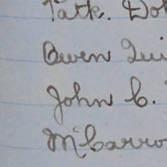 Patk. Do
Owen Qui
John C.
McCarro